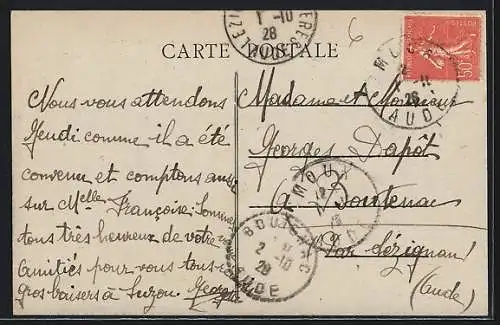 LEZI ERES
1 -10
28
AUDE
6
CARTE POSTALE
50c
MOUX
-11
28
AUDE
Nous vous attendons
Jeudi comme il a été
convenu et comptons aussi
sur Melle Françoise. Sommes
tous très heureux de votre
amitiés pour vous tous
gros baisers à Suzon. Georges
Madame et Monsieur
Georges Dapôt
à Fontenac
Par Lézignan
(Aude)
MOUX
BOUT
2 -10
28
AUDE